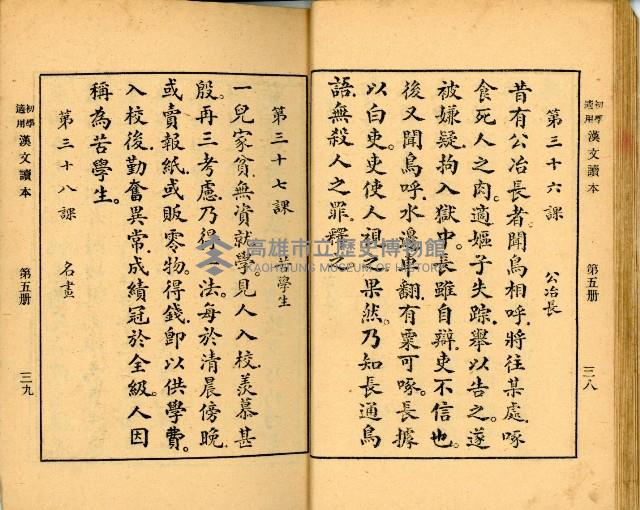 初學適用 漢文讀本 第五册 三八
第三十六課 公冶長
昔有公冶長者。聞鳥相呼。將往某處。啄
食死人之肉。適嫗子失踪。舉以告之。遂
被嫌疑。拘入獄中。長雖自辯。吏不信也。
後又聞鳥呼。水邊車翻。有粟可啄。長據
以白吏。吏使人視之。果然。乃知長通鳥
語。無殺人之罪。釋之。
第三十七課 苦學生
一兒家貧。無資就學。見人入校。羨慕甚
殷。再三考慮。乃得一法。每於清晨傍晚。
或賣報紙。或販零物。得錢卽以供學費。
入校後。勤奮異常。成績冠於全級。人因
稱為苦學生。
第三十八課 名畫
初學適用 漢文讀本 第五册 三九
高雄市立歷史博物館
KAOHSIUNG MUSEUM OF HISTORY